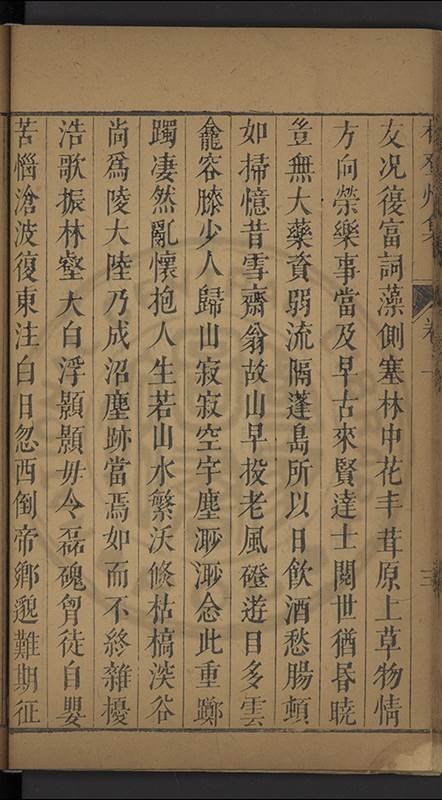 友况復富詞藻側塞林中花丰茸原上草物情
方向榮樂事當及早古來賢達士閱世猶昏曉
豈無大藥資弱流隔蓬島所以日飲酒愁腸頓
如掃憶昔雪齋翁故山早投老風磴遊目多雲
龕容膝少人歸山寂寂空宇塵渺渺念此重躑
躅凄然亂懷抱人生若山水繁沃倐枯槁深谷
尚爲陵大陸乃成沼塵跡當焉如而不終雜擾
浩歌振林壑大白浮顥顥毋令磊磈胷徒自嬰
苦惱滄波復東注白日忽西倒帝鄉邈難期征